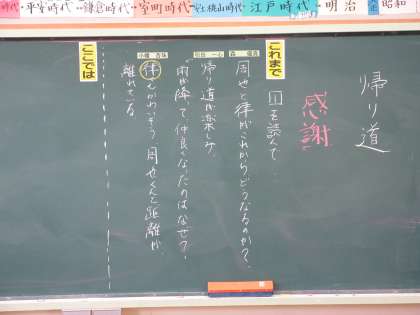 時代・平安時代・鎌倉時代・室町時代・安土桃山時代・江戸時代・明治 大正 昭和
帰り道
感謝
これまで
1を読んで…
周也と律がこれからどうなるのか?
帰り道が楽しみ。
雨が降って仲良くなったのはなぜ?
律がかわいそう 周也くんと距離が
離れている
ここでは